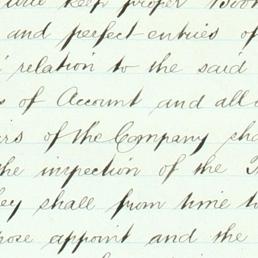 keep proper Book
and perfect entries of
relation to the said
s of Account and all
rs of the Company sha
the inspection of the
ey shall from time to
pose appoint and the